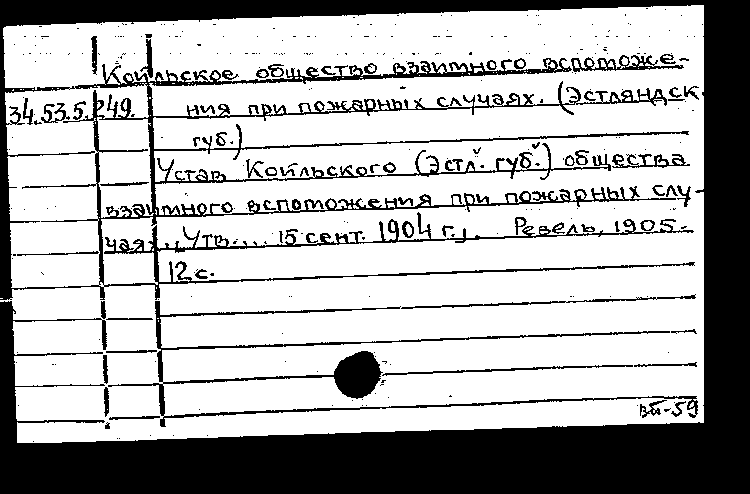 Коильское общество взаимного вспоможе-
34.53.5.249. ния при пожарных случаях. (Эстляндск.
губ.)
Устав Коильского (Эстл. губ.) общества
взаимного вспоможения при пожарных слу-
чаях. „Утв.... 15 сент. 1904 г.„. Ревель, 1905.
12 с.
вп-59